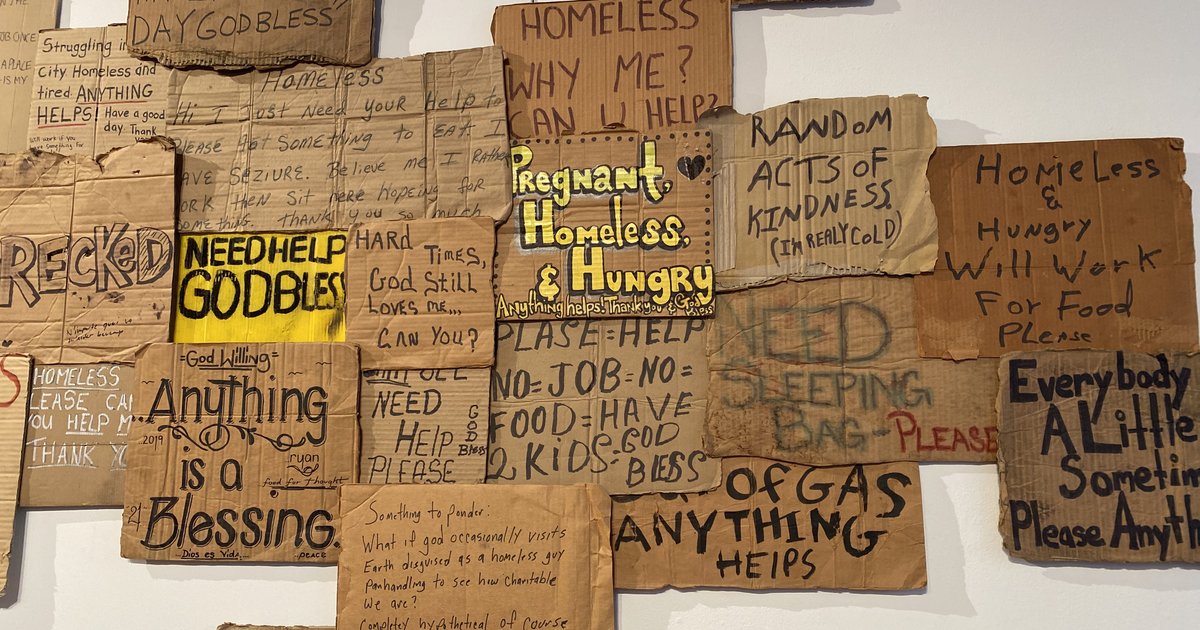 DAY GOD BLESS"
JOB ONCE
A PLACE
IS MY
Struggling in
City Homeless and
tired. ANYTHING
HELPS! Have a good
day. Thank
Will work if you
HOMELESS
Hi I Just Need your Help to
Please Get Something to EAT I
AVE SEZIURE. Believe me I Rather
ORK then Sit here hopeing for
SOMETHING. THANK you so much
HOMELESS
WHY ME?
CAN U HELP?
Pregnant,
Homeless,
& Hungry
Anything helps! Thank you & God
RANDOM
ACTS OF
KINDNESS
(Im REALY COLD)
HOMELESS
&
Hungry
Will Work
For Food
Please
RECKED
NEED HELP
GOD BLESS
HARD
TIMES,
God Still
LOVES ME...
CAN YOU?
PLASE=HELP
NO=JOB=NO=
FOOD=HAVE
2 KIDS=GOD
BLESS
NEED
SLEEPING
BAG-PLEASE
Everybody
A Little
Sometim
Please Anyth
S
HOMELESS
LEASE CAN
YOU HELP M
THANK YO
=God Willing=
Anything
2019
ryan
food for thought
is a
21
Blessing.
Dios es Vida...
..peace
NEED
HELP
PLEASE
GOD
Bless
OF GAS
ANYTHING
HElPS
Something to ponder.
What if god occasionally visits
Earth disguised as a homeless guy
Panhandling to see how charitable
We are?
Completely hypothetical of course